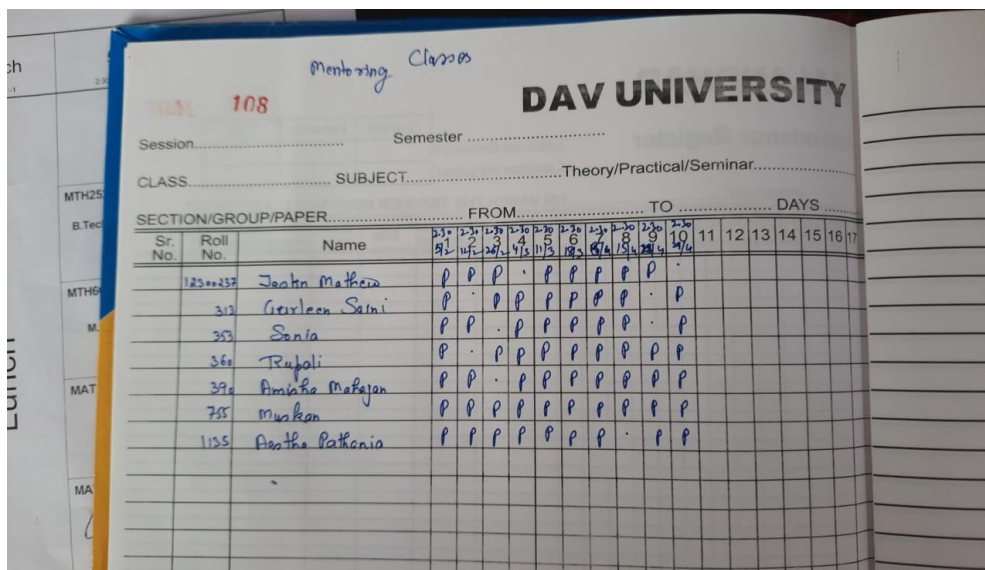 Mentoring Classes
108
DAV UNIVERSITY
Session
Semester
CLASS
SUBJECT
Theory/Practical/Seminar
SECTION/GROUP/PAPER
FROM
TO
DAYS
Sr. No. Roll No. Name 1 2 3 4 5 6 7 8 9 10 11 12 13 14 15 16 17
2-30 2-30 2-30 2-30 2-30 2-30 2-30 2-30 2-30 2-30
5/2 12/2 4/3 11/3 15/4
12300237 Jastin Mathew P P P . P P P P P .
313 Gurleen Saini P . P P P P P P . P
353 Sonia P P . P P P P P . P
360 Rupali P . P P P P P P P P
390 Amisha Mahajan P P . P P P P P P P
755 Muskan P P P P P P P P P P
1135 Aastha Pathania P P P P P P P . P P
MTH25
B.Tec
MTH6
M.
MAT
MA